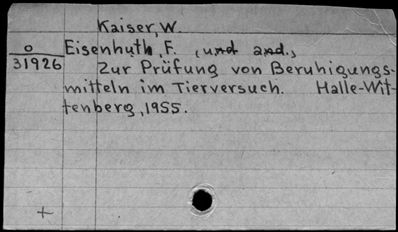 Kaiser, W.
o Eisenhuth, F. , und and.,
31926 Zur Prüfung von Beruhigungs-
mitteln im Tierversuch. Halle-Wit-
tenberg, 1955.
+